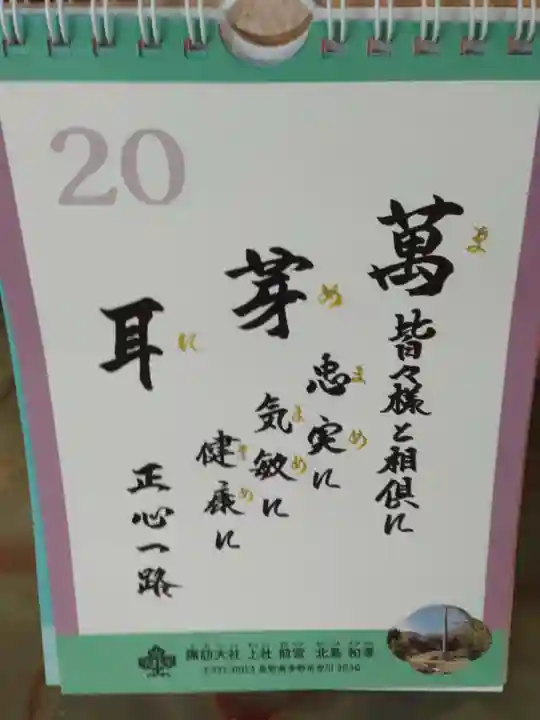 20
萬
ま
皆々様と相倶に
芽
め
忠実に
まめ
気敏に
まめ
健康に
まめ
耳
に
正心一路
諏訪大社 上社 前宮 北島 和孝